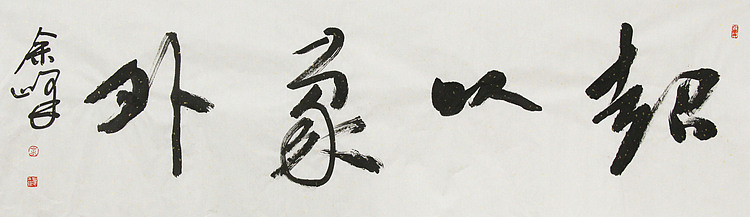 超以象外
余峰